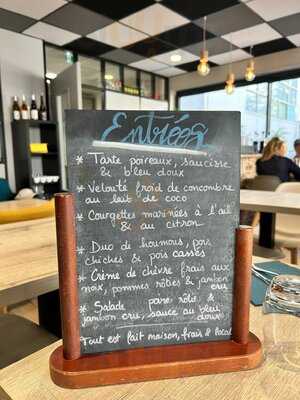 Entrées
* Tarte poireaux, saucisse
& bleu doux
* Velouté froid de concombre
au lait de coco
* Courgettes marinées à l'ail
& au citron
* Duo de houmous, pois
chiches & pois cassés
* Crème de chèvre frais aux
noix, pommes rôties & jambon
cru
* Salade poire rôtie &
jambon cru, sauce au bleu
doux
Tout est fait maison, frais & local